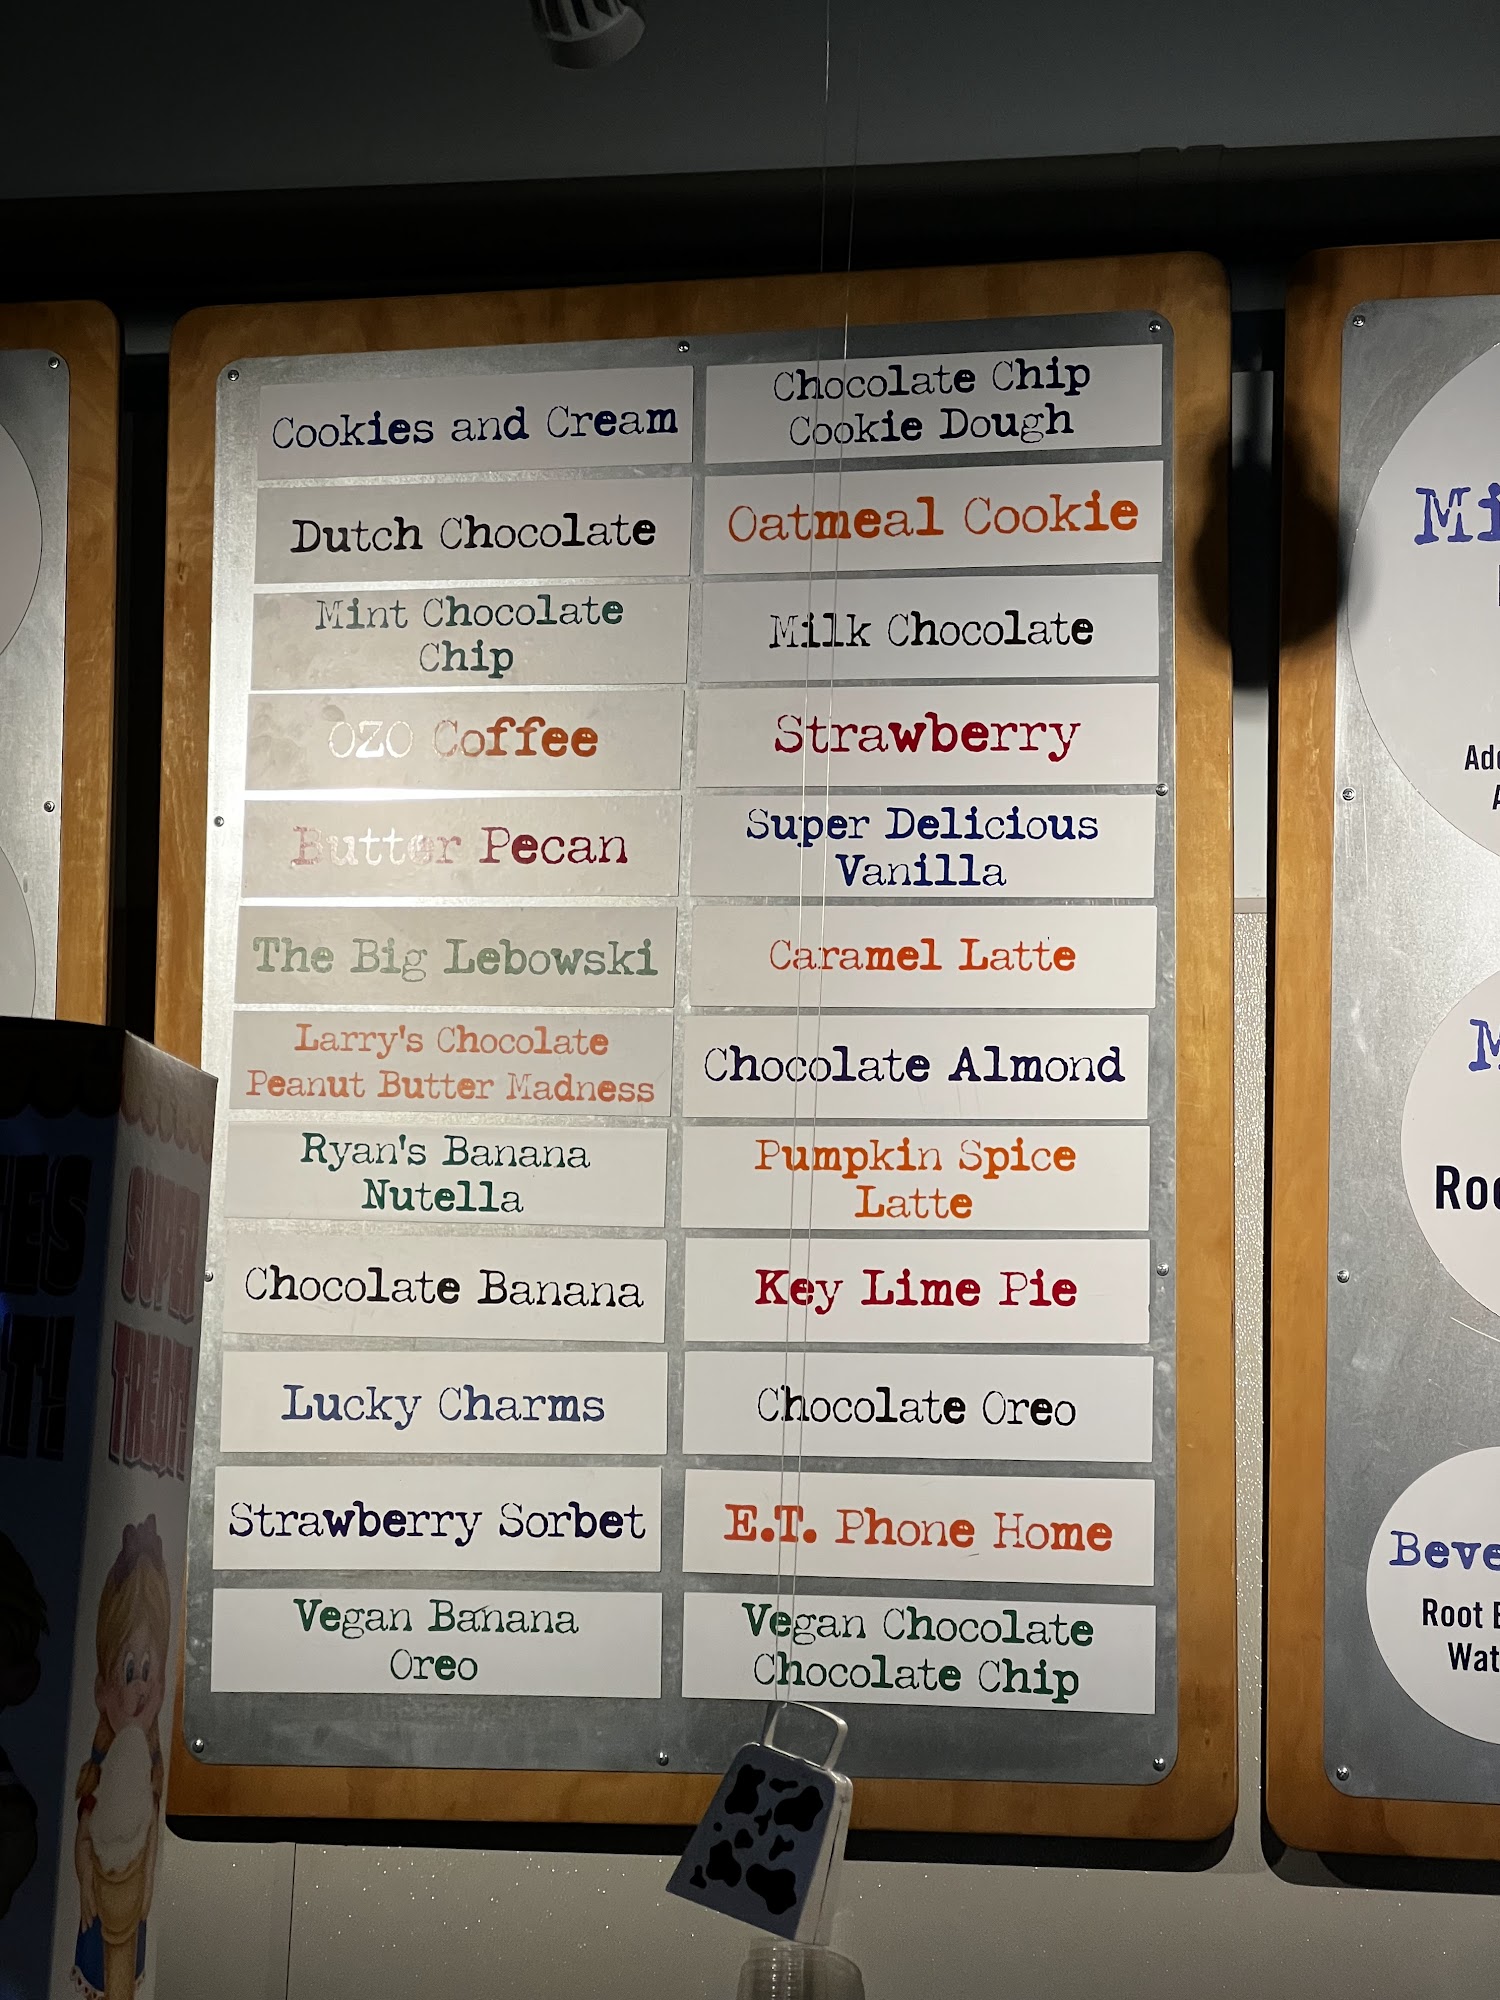 Cookies and Cream
Dutch Chocolate
Mint Chocolate
Chip
OZO Coffee
Butter Pecan
The Big Lebowski
Larry's Chocolate
Peanut Butter Madness
Ryan's Banana
Nutella
Chocolate Banana
Lucky Charms
Strawberry Sorbet
Vegan Banana
Oreo
Chocolate Chip
Cookie Dough
Oatmeal Cookie
Milk Chocolate
Strawberry
Super Delicious
Vanilla
Caramel Latte
Chocolate Almond
Pumpkin Spice
Latte
Key Lime Pie
Chocolate Oreo
E.T. Phone Home
Vegan Chocolate
Chocolate Chip
SUPER
TREAT!
Root